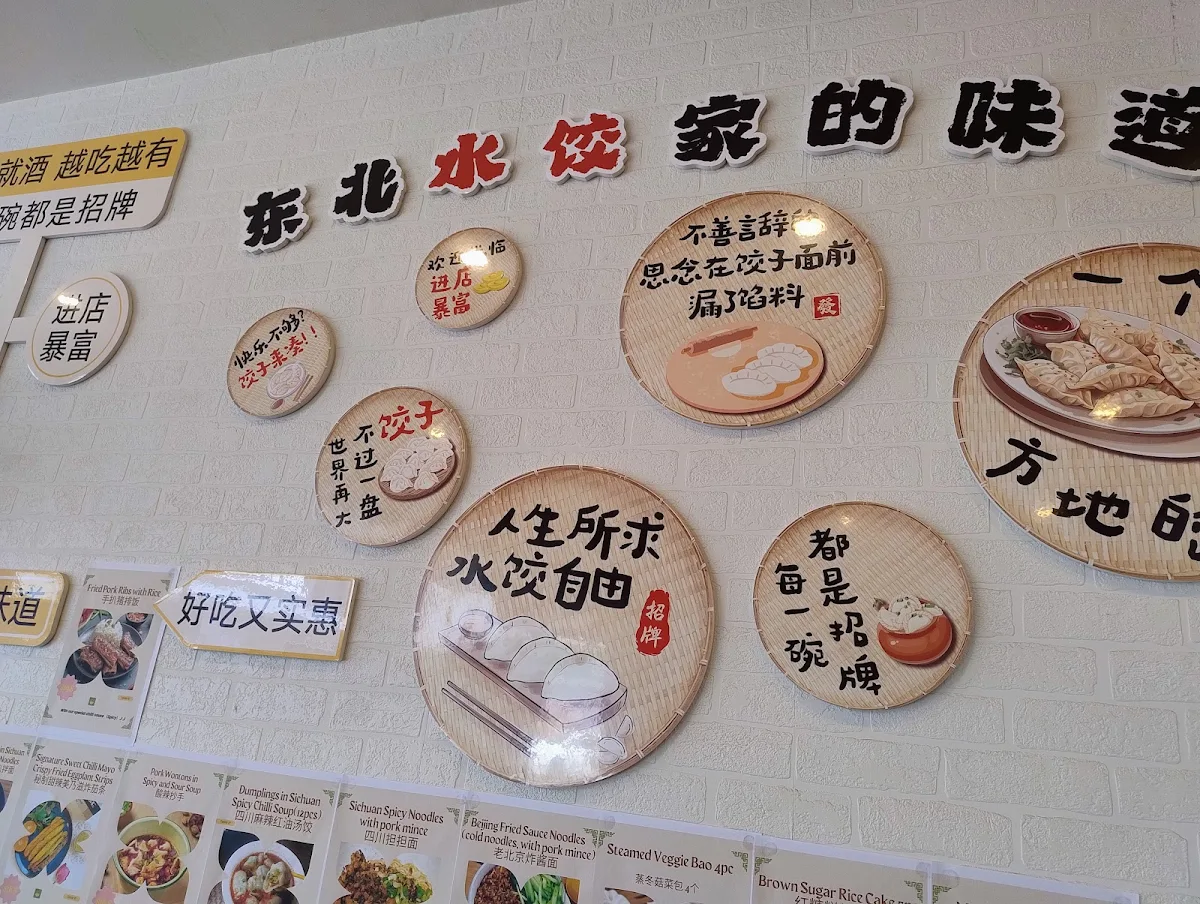 东北水饺家的味道
就酒 越吃越有
碗都是招牌
进店
暴富
欢迎
临
进店
暴富
快乐不够?
饺子来凑!!
饺子
不过一盘
世界再大
不善言辞的
思念在饺子面前
漏了馅料
發
一个
方地的
人生所求
水饺自由
招牌
都是招牌
每一碗
味道
好吃又实惠
Fried Pork Ribs with Rice
手扒猪排饭
Signature Sweet Chilli Mayo
Crispy Fried Eggplant Strips
秘制甜辣美乃滋炸茄条
Pork Wontons in
Spicy and Sour Soup
酸辣抄手
Dumplings in Sichuan
Spicy Chilli Soup(12pcs)
四川麻辣红油汤饺
Sichuan Spicy Noodles
with pork mince
四川担担面
Beijing Fried Sauce Noodles
(cold noodles, with pork mince)
老北京炸酱面
Steamed Veggie Bao 4pc
蒸冬菇菜包 4个
Brown Sugar Rice Cake